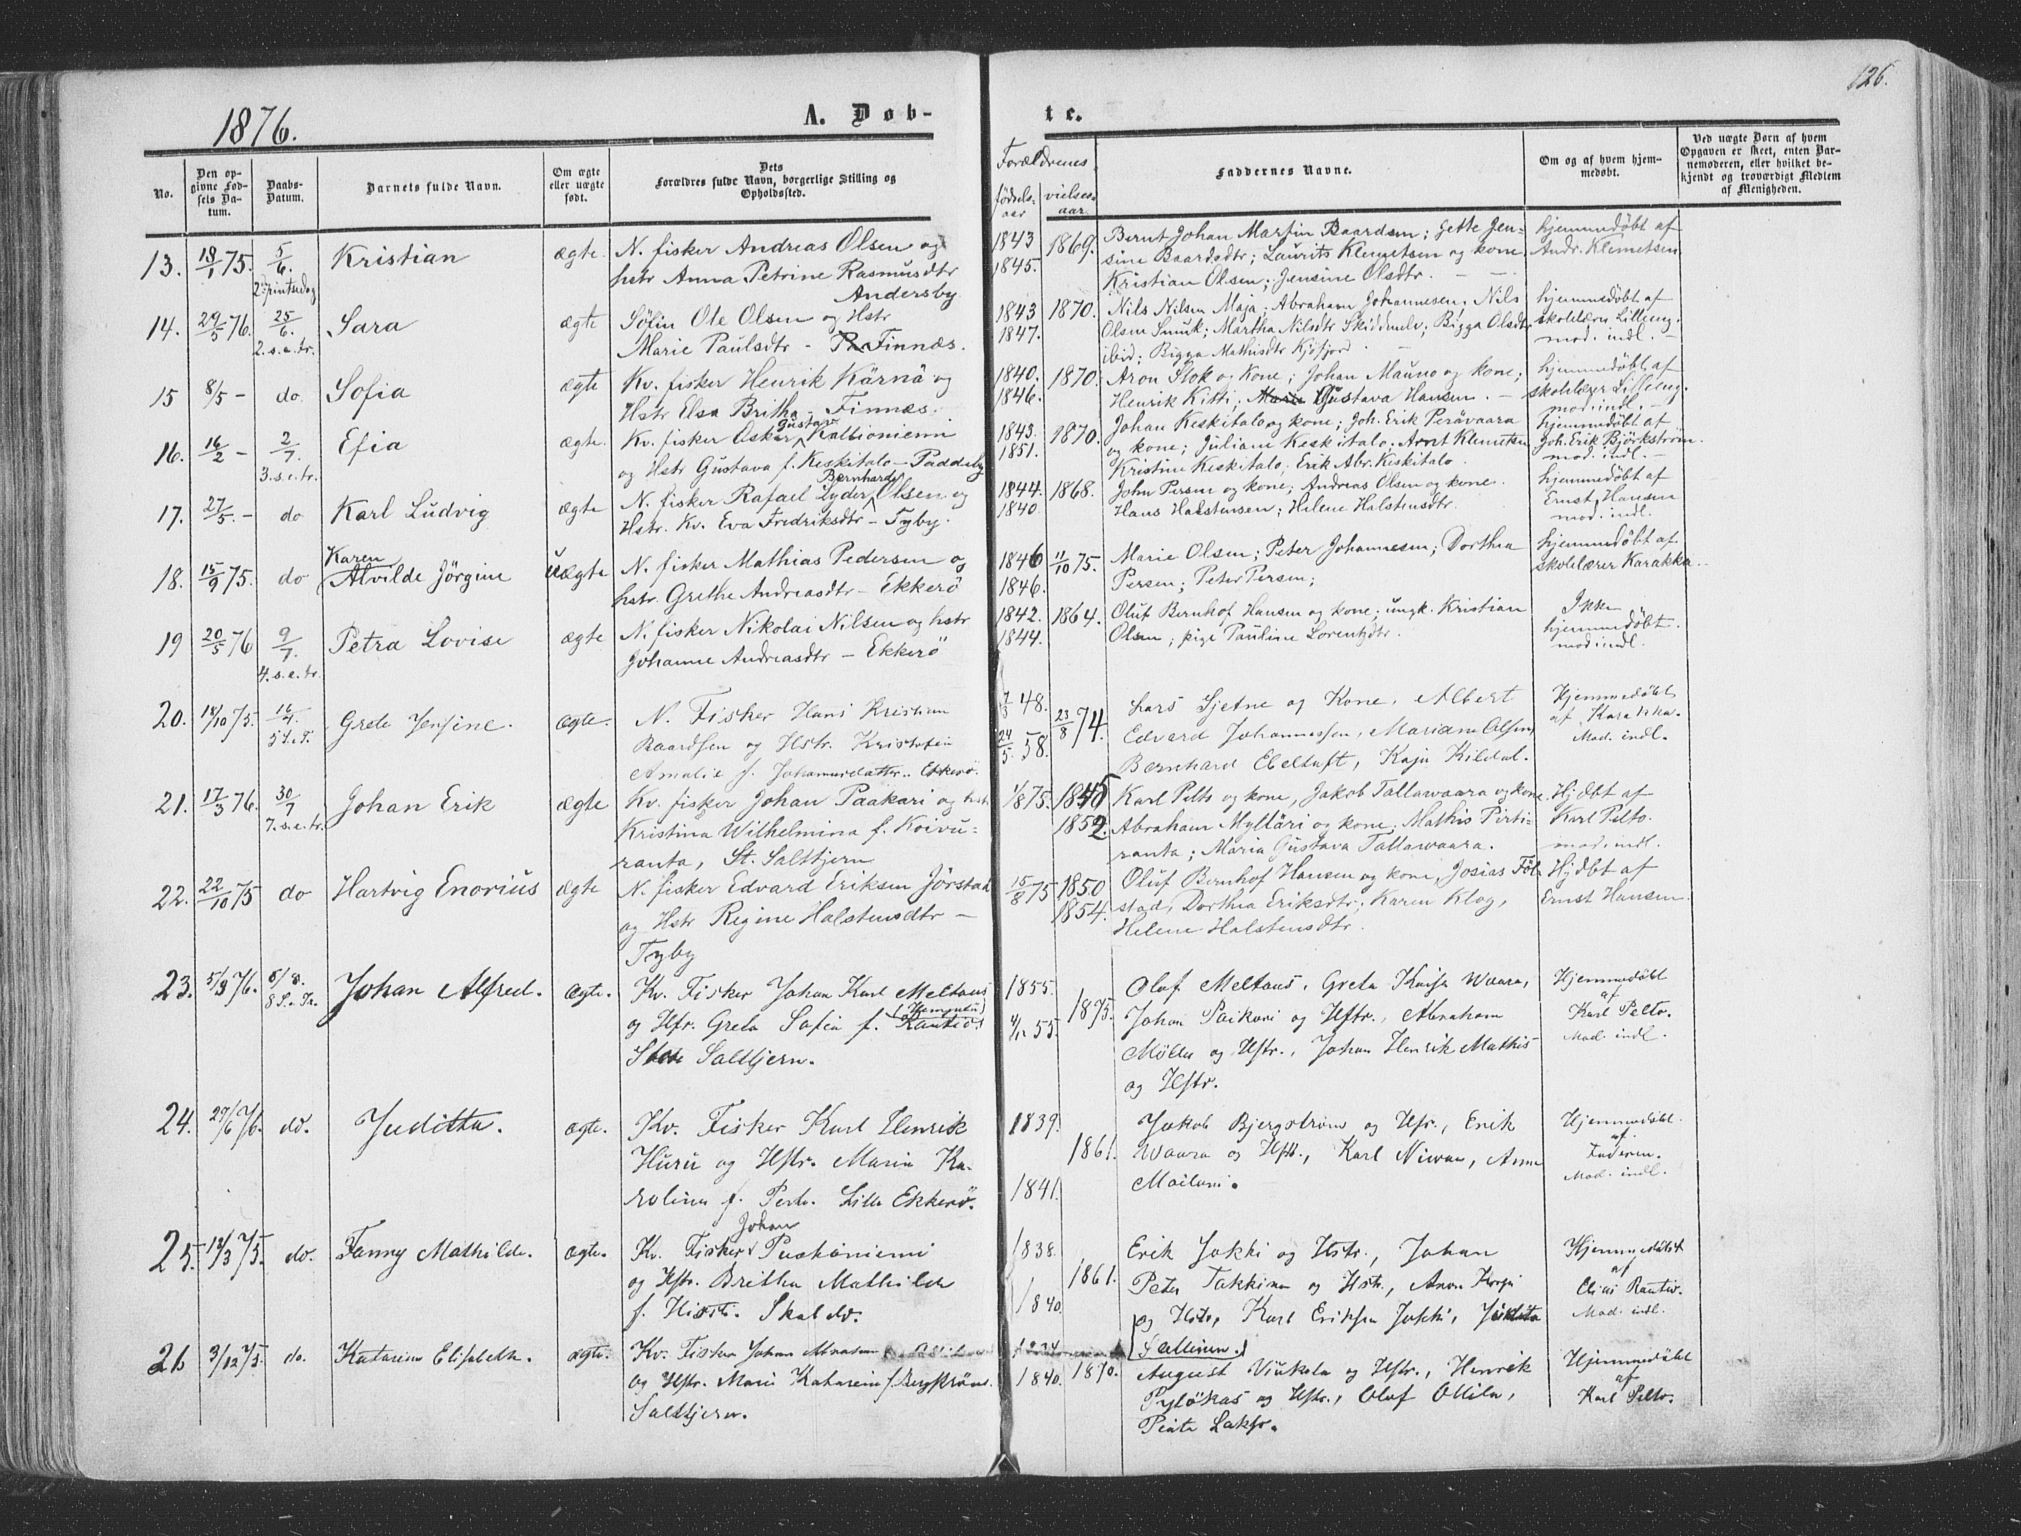 126.
1876.
A. Døb-
te.
No.
Den op-
givne Fød-
sels Da-
tum.
Daabs-
Datum.
Barnets fulde Navn.
Om ægte
eller uægte
født.
Dets
Forældres fulde Navn, borgerlige Stilling og
Opholdssted.
Forældrenes
fødsels-
aar
vielses-
aar.
Faddernes Navne.
Om og af hvem hjem-
medøbt.
Ved uægte Børn af hvem
Opgaven er skeet, enten Bar-
nemoderen, eller hvilket be-
kjendt og troværdigt Medlem
af Menigheden.
13. 18/1 75. 5/6. 2. pintsedag Kristian ægte.
N. fisker Andreas Olsen og
hstr Anna Petrine Rasmusdtr
Andersby
1843
1845.
1869.
Bernt Johan Martin Baardsen; Jette Jen-
sine Baardsdtr; Laurits Klemetsen og kone
Kristian Olsen; Jensine Olsdtr.
hjemmedøbt af
Andr. Klemetsen
14. 29/5 76. 25/6. 2. s. e. tr. Sara ægte
Sølin Ole Olsen og Hstr
Marie Paulsdtr - Finnæs.
1843
1847.
1870.
Nils Nilsen Maja; Abraham Johannesen. Nils
Olsen Smuk; Martha Nilsdtr Skiddenelv; Bigga Olsdtr
ibid; Bigga Mathisdtr Kjøfjord
hjemmedøbt af
skolelærer Lilleng.
mod. indl. -
15 8/5 - do. Sofia ægte
Kv. fisker Henrik Kärnä og
Hstr Elsa Britha - Finnæs.
1840.
1846.
1870.
Aron Stok og kone; Johan Mauno og kone;
Henrik Kitti; Marie Gustava Hansen. -
hjemmedøbt af
skolelærer Lilleng.
mod. indl. -
16. 16/2 - 2/7. 3. s. e. tr. Efia ægte.
Gustav
Kv. fisker Oskar Kallioniemi
og Hstr Gustava f. Keskitalo - Paddeby
1843.
1851.
1870.
Johan Keskitalo og kone; Joh. Erik Perävaara
og kone; Juliane Keskitalo; Arnt Klemetsen
Kristine Keskitalo; Erik Abr. Keskitalo.
hjemmedøbt af
Joh. Erik Björkström
mod. indl. -
17. 27/5. - do Karl Ludvig ægte
Bernhard
N. fisker Rafael Lyder Olsen og
Hstr. Kv. Eva Fredriksdtr - Tyby.
1844.
1840
1868.
John Persen og kone; Andreas Olsen og kone.
Hans Halstensen; Helene Halstensdtr.
hjemmedøbt af
Ernst Hansen
mod. indl.
18. 15/9 75. do Karen
Alvilde Jörgine uægte
N. fisker Mathias Pedersen og
hstr. Grethe Andreasdtr - Ekkerö
1846
1846.
11/10 75.
Marie Olsen; Peter Johannesen; Dorthea
Persen; Peter Persen;
hjemmedøbt af
skolelærer Karakka.
19 20/5 76 9/7. 4. s. e. tr. Petra Lovise ægte
N. fisker Nikolai Nilsen og hstr
Johanne Andreasdtr - Ekkerö
1842.
1844.
1864.
Oluf Bernhof Hansen og kone; ungk. Kristian
Olsen; pige Pauline Lorentzdtr.
Ikke
hjemmedøbt.
mod indl.
20. 18/10 75. 16/7. 5 S. e. T. Grete Jensine. ægte.
N. Fisker Hans Kristian
Baardsen og Hstr. Kristofin
Amalie f. Johannesdatter. Ekkerö.
7/3 48.
24/5 58.
23/8 74.
Lars Gjetne og Kone, Albert
Edvard Johannessen, Mariane Olsen,
Bernhard Ebeltoft, Kaja Kildal.
Hjemmedøbt
af Karakka.
Mod. indl.
21. 17/3 76. 30/7 7. s. e. tr. Johan Erik ægte
Kv. fisker Johan Paakari og hstr.
Kristina Wilhelmina f. Koivu-
ranta, St. Saltbjern
1/8 75.
1845
1852.
Karl Pelto og kone, Jakob Tallawaara og kone.
Abraham Mylläri og kone. Mathis Pirti-
ranta; Maria Gustava Tallawaara.
Hjdbt af
Karl Pelto.
mod. indl.
22. 22/10 75 do Hartvig Enorius ægte
N. fisker Edvard Eriksen Jörstad
og Hstr Regine Halstensdtr -
Tyby
15/8 75
1850
1854.
Oluf Bernhof Hansen og kone, Josias Föl-
stad, Dorthea Eriksdtr; Karen Klog,
Helene Halstensdtr.
Hjdbt af
Ernst Hansen.
23. 5/3 76. 6/8. 8 S. e. Tr. Johan Alfred. ægte.
Kv. Fisker Johan Karl Meltaus
og Hstr. Greta Sofia f. Rautio
Store Saltbjern.
1855.
4/12 55.
1875.
Olof Meltaus, Greta Kaisa Waara,
Johan Paikari og Hstr., Abraham
Mölla og Hstr., Johan Henrik Mathis
og Hstr.
Hjemmedøbt
af
Karl Pelto.
Mod. indl.
24. 29/6 76. do. Juditta. ægte.
Kv. Fisker Karl Henrik
Huru og Hstr. Maria Ka-
rolina f. Perto. Lille Ekkerö.
1839.
1841.
1861.
Jakob Bjergström og Hstr., Erik
Waara og Hstr., Karl Niwa, Anna
Moilani.
Hjemmedøbt
af
Faderen.
Mod. indl.
25. 12/3 75. do. Fanny Mathilde. ægte.
Johan
Kv. Fisker Puskoniemi
og Hstr. Britha Mathilde
f. Hiorti. Skal do.
1838.
1840.
1861.
Erik Jokki og Hstr., Johan
Peter Takkinen og Hstr., Aron Korpi
og Hstr, Karl Eriksen Jokki, Juditta
Sallinen.
Hjemmedøbt
af
Elias Rautio.
Mod. indl.
26 3/12 75. do. Katarina Elisabeth. ægte.
Kv. Fisker Johan Abraham
og Hstr. Maria Katarina f. Bergström.
Saltbjern.
1834
1840.
1870.
August Viukola og Hstr., Henrik
Pylökas og Hstr., Olof Ollila,
Piete Lakso.
Hjemmedøbt
af
Karl Pelto.